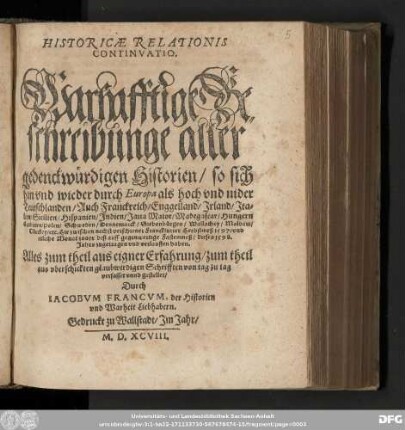 HISTORICÆ RELATIONIS
CONTINVATIO.
Warhafftige Be-
schreibunge aller
gedenckwürdigen Historien / so sich
hin vnd wieder durch Europa als hoch vnd nider
Teutschlanden / Auch Franckreich / Engelland / Irland / Ita-
lien Sicilien / Hispanien / Indien / Jaua Maior / Hungern
Polen / Schweden / Dennemarck / Siebenbürgen / Wallachey / Moldaw /
Türckey / etc. Hier zwischen nechst verschienen
biß auff gegenwertige Fastenmeß / dieses
Jahrs zugetragen vnd verlauffen haben.
Alles zum theil aus eigner Erfahrung / zum theil
aus vberschickten glaubwirdigen Schrifften von tag zu tag
verfasset vnnd gestellet /
Durch
IACOBVM FRANCVM, der Historien
vnd Warheit Liebhabern.
Gedruckt zu Wallstadt / Im Jahr /
M. D. XCVIII.
5
Universitäts- und Landesbibliothek Sachsen-Anhalt
DFG